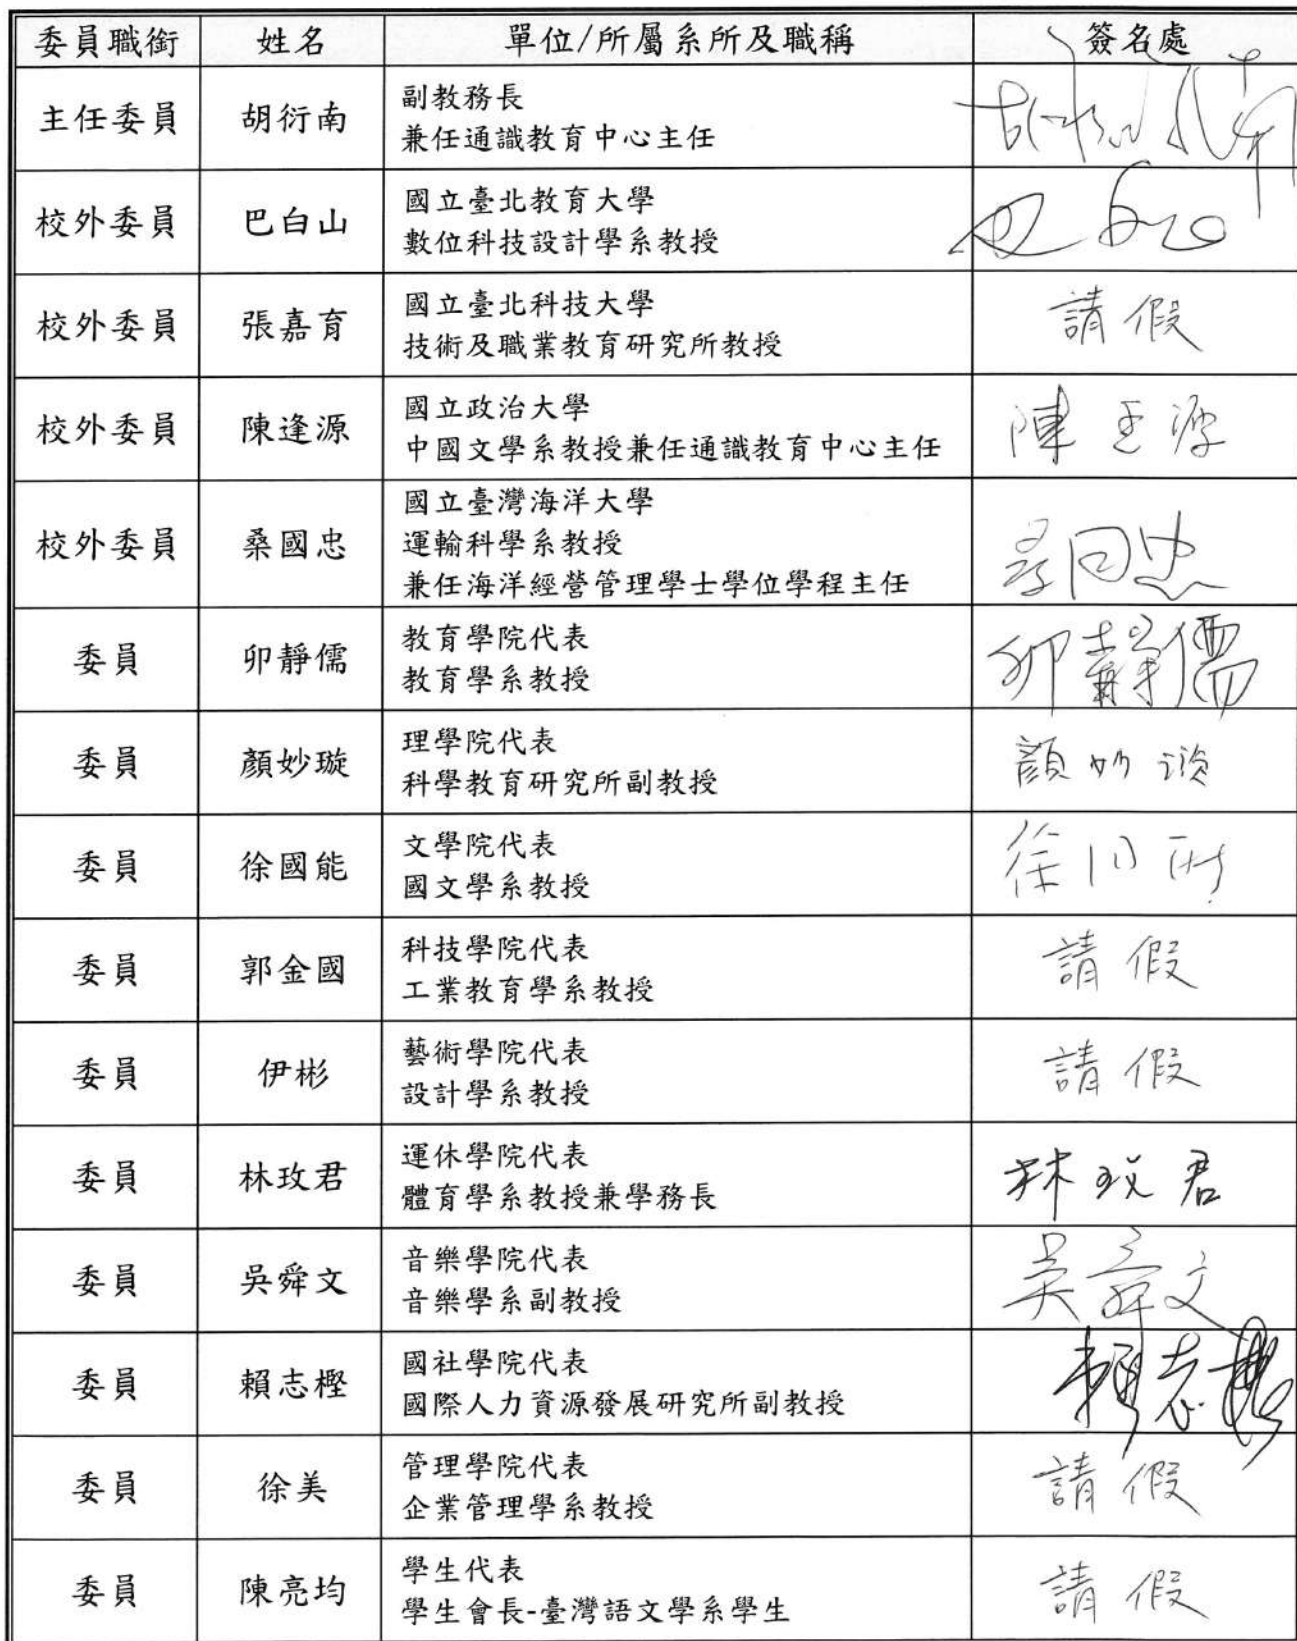 委員職銜 姓名 單位/所屬系所及職稱 簽名處
主任委員 胡衍南 副教務長
兼任通識教育中心主任
校外委員 巴白山 國立臺北教育大學
數位科技設計學系教授
校外委員 張嘉育 國立臺北科技大學 請假
技術及職業教育研究所教授
校外委員 陳逢源 國立政治大學
中國文學系教授兼任通識教育中心主任
校外委員 桑國忠 國立臺灣海洋大學
運輸科學系教授
兼任海洋經營管理學士學位學程主任
委員 卯靜儒 教育學院代表 卯靜儒
教育學系教授
委員 顏妙璇 理學院代表 顏妙璇
科學教育研究所副教授
委員 徐國能 文學院代表
國文學系教授
委員 郭金國 科技學院代表 請假
工業教育學系教授
委員 伊彬 藝術學院代表 請假
設計學系教授
委員 林玫君 運休學院代表 林玫君
體育學系教授兼學務長
委員 吳舜文 音樂學院代表 吳舜文
音樂學系副教授
委員 賴志樫 國社學院代表 賴志樫
國際人力資源發展研究所副教授
委員 徐美 管理學院代表 請假
企業管理學系教授
委員 陳亮均 學生代表 請假
學生會長-臺灣語文學系學生